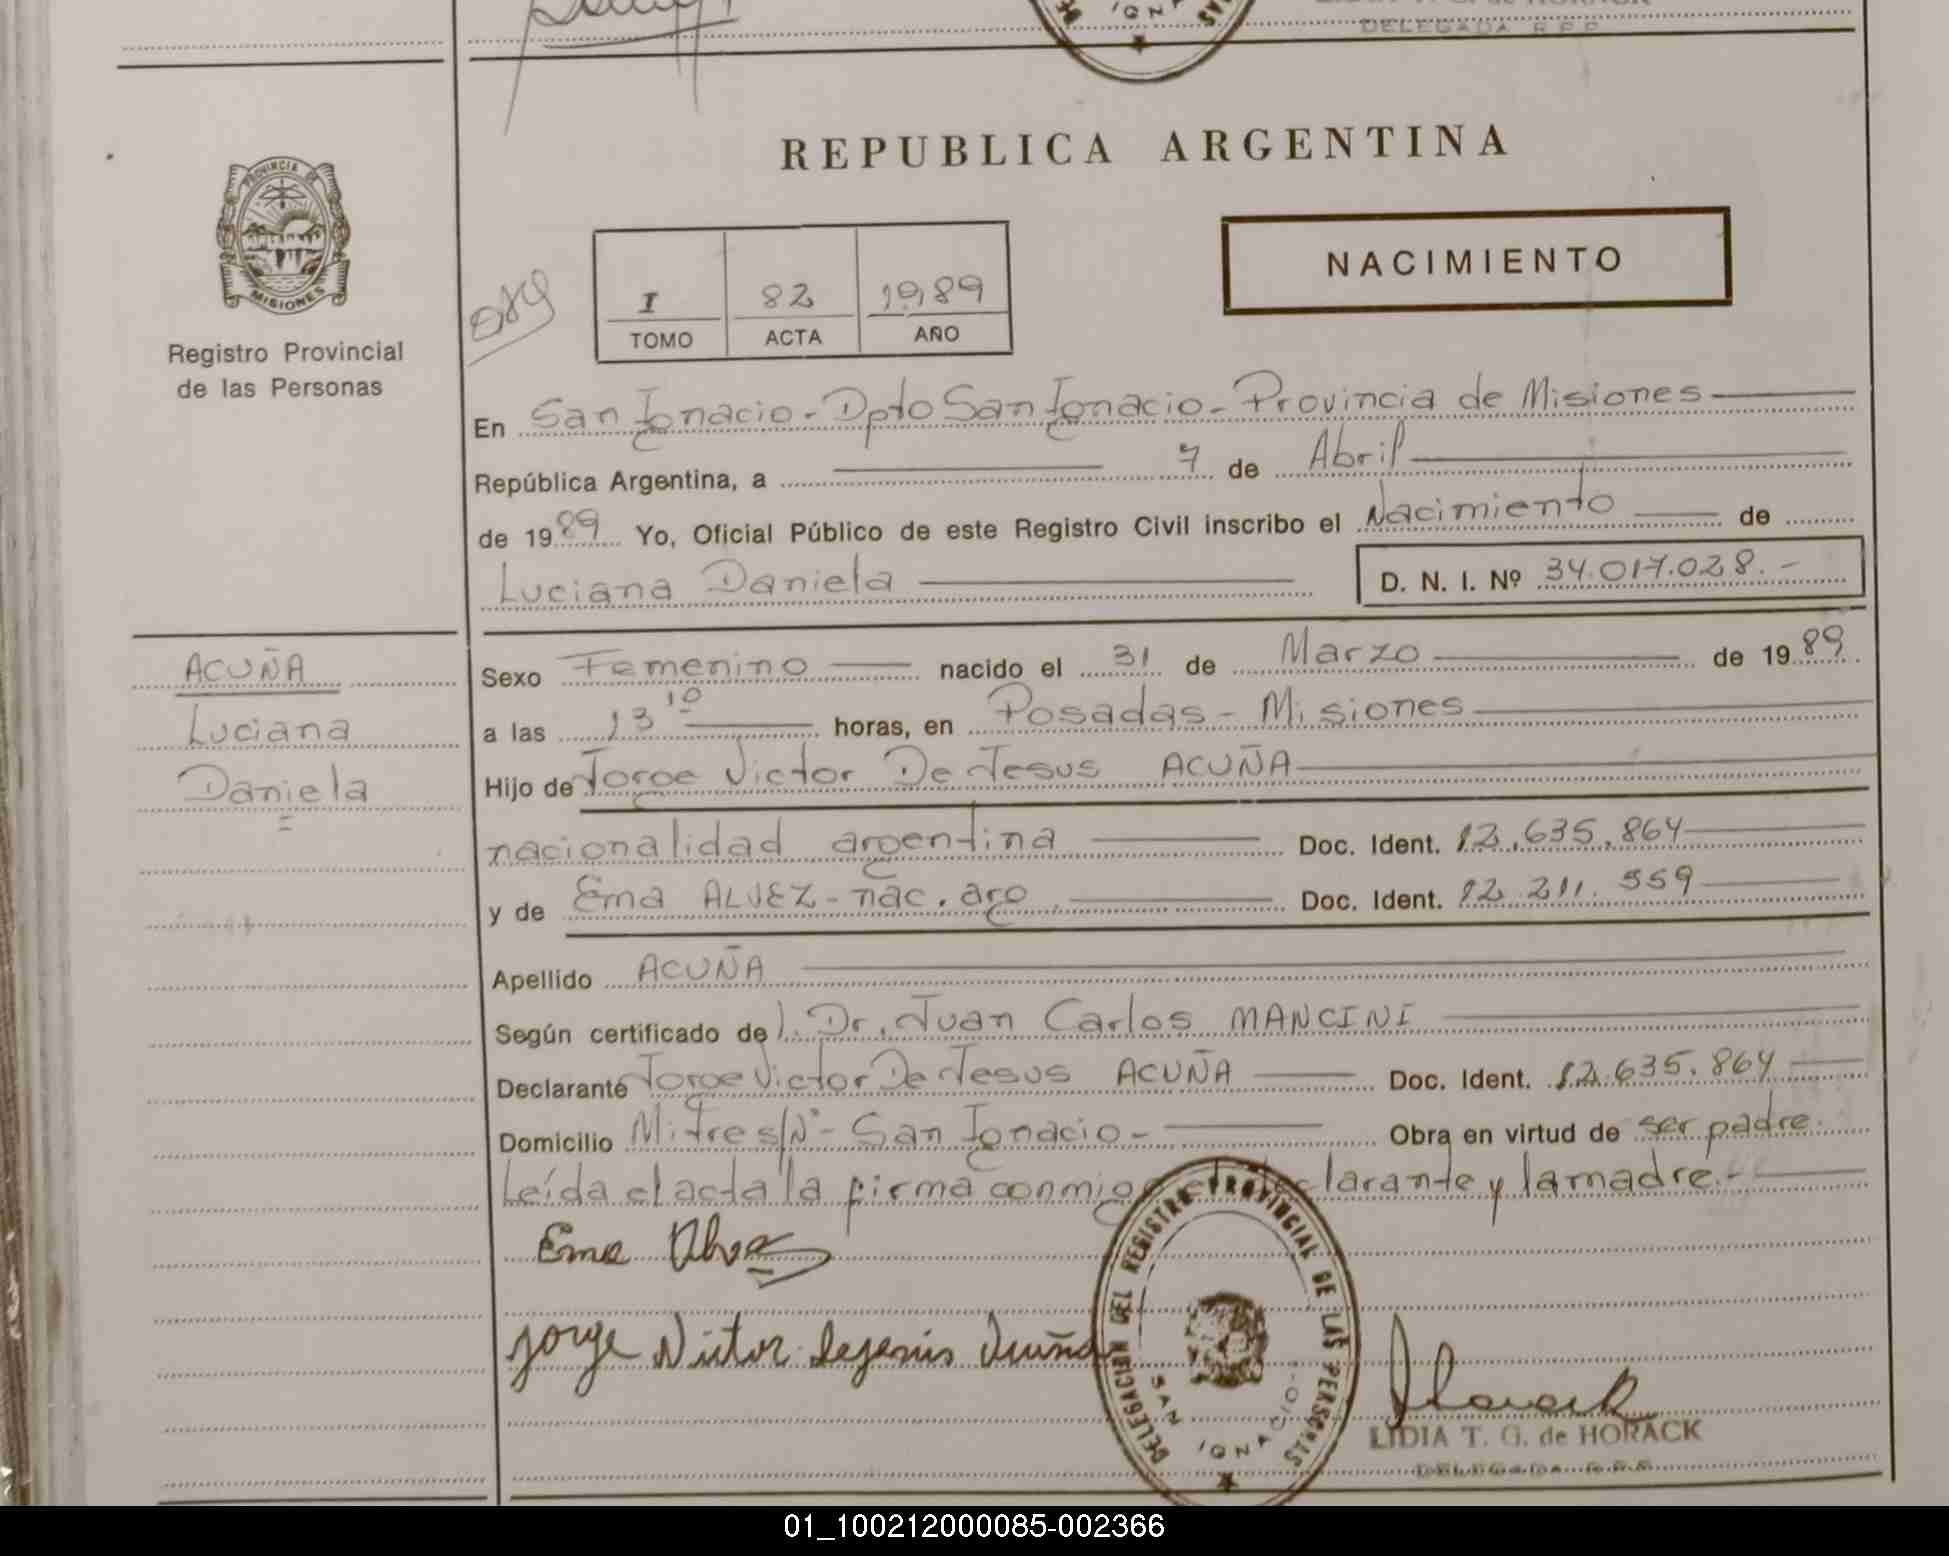 DELEGADA R.P.P.
REPUBLICA ARGENTINA
PROVINCIA DE
MISIONES
Registro Provincial
de las Personas
NACIMIENTO
I 82 1989
TOMO ACTA AÑO
En San Ignacio - Dpto San Ignacio - Provincia de Misiones
República Argentina, a 7 de Abril
de 1989 Yo, Oficial Público de este Registro Civil inscribo el Nacimiento de
Luciana Daniela D. N. I. Nº 34.017.028.-
ACUÑA
Luciana
Daniela
Sexo Femenino nacido el 31 de Marzo de 1989
a las 13 10 horas, en Posadas - Misiones
Hijo de Jorge Victor De Jesus ACUÑA
nacionalidad argentina Doc. Ident. 12.635.864
y de Ema ALVEZ - nac. arg. Doc. Ident. 12.211.559
Apellido ACUÑA
Según certificado del Dr. Juan Carlos MANCINI
Declarante Jorge Victor De Jesus ACUÑA Doc. Ident. 12.635.864
Domicilio Mitre s/Nº - San Ignacio - Obra en virtud de ser padre.
Leída el acta la firma conmigo el declarante y la madre.-
Ema Alvez
Jorge Victor dejesus Acuña
DELEGACION DEL REGISTRO PROVINCIAL DE LAS PERSONAS
SAN IGNACIO
Horack
LIDIA T. G. de HORACK
DELEGADA R.P.P.
01_100212000085-002366